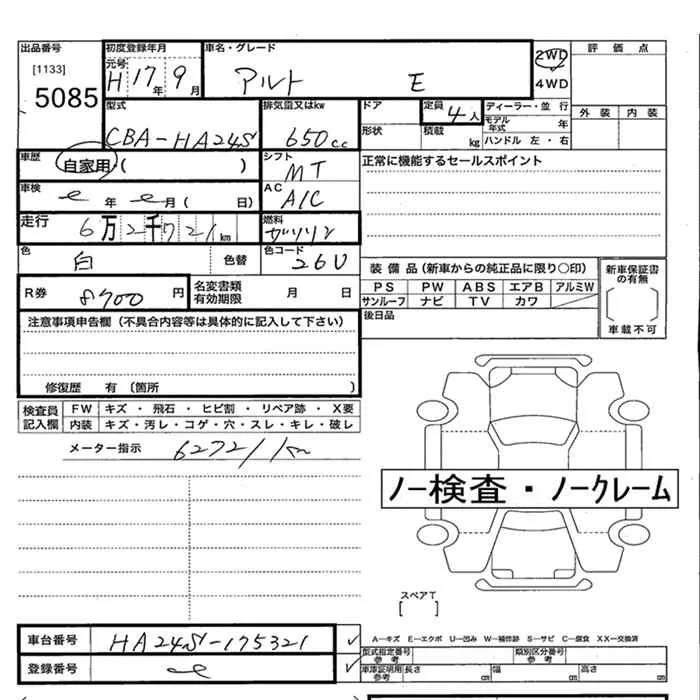 出品番号
[1133]
5085
初度登録年月
元号
H17年9月
車名・グレード
アルト E
2WD
4WD
評価点
外装 内装
型式
CBA-HA24S
排気量又はkw
650cc
ドア
形状
定員
4人
積載
kg
ディーラー・並行
モデル年式 年
ハンドル 左・右
車歴
自家用( )
シフト
MT
正常に機能するセールスポイント
車検
年 月( 日)
AC
A/C
走行
6万2千721km
燃料
ガソリン
色
白
色替
色コード
26U
装備品(新車からの純正品に限り○印)
PS PW ABS エアB アルミW
サンルーフ ナビ TV カワ
新車保証書の有無
車載不可
R券
8700円
名変書類有効期限 月 日
後日品
注意事項申告欄(不具合内容等は具体的に記入して下さい)
修復歴 有(箇所 )
検査員記入欄
FW キズ・飛石・ヒビ割・リペア跡・X要
内装 キズ・汚レ・コゲ・穴・スレ・キレ・破レ
メーター指示 62721km
ノー検査・ノークレーム
スペアT
[ ]
車台番号 HA24S-175321
登録番号
A―キズ E―エクボ U―凹み W―補修跡 S―サビ C―腐食 XX―交換済
型式指定番号 参考
類別区分番号 参考
車庫証明用 参考 長さ cm 幅 cm 高さ cm